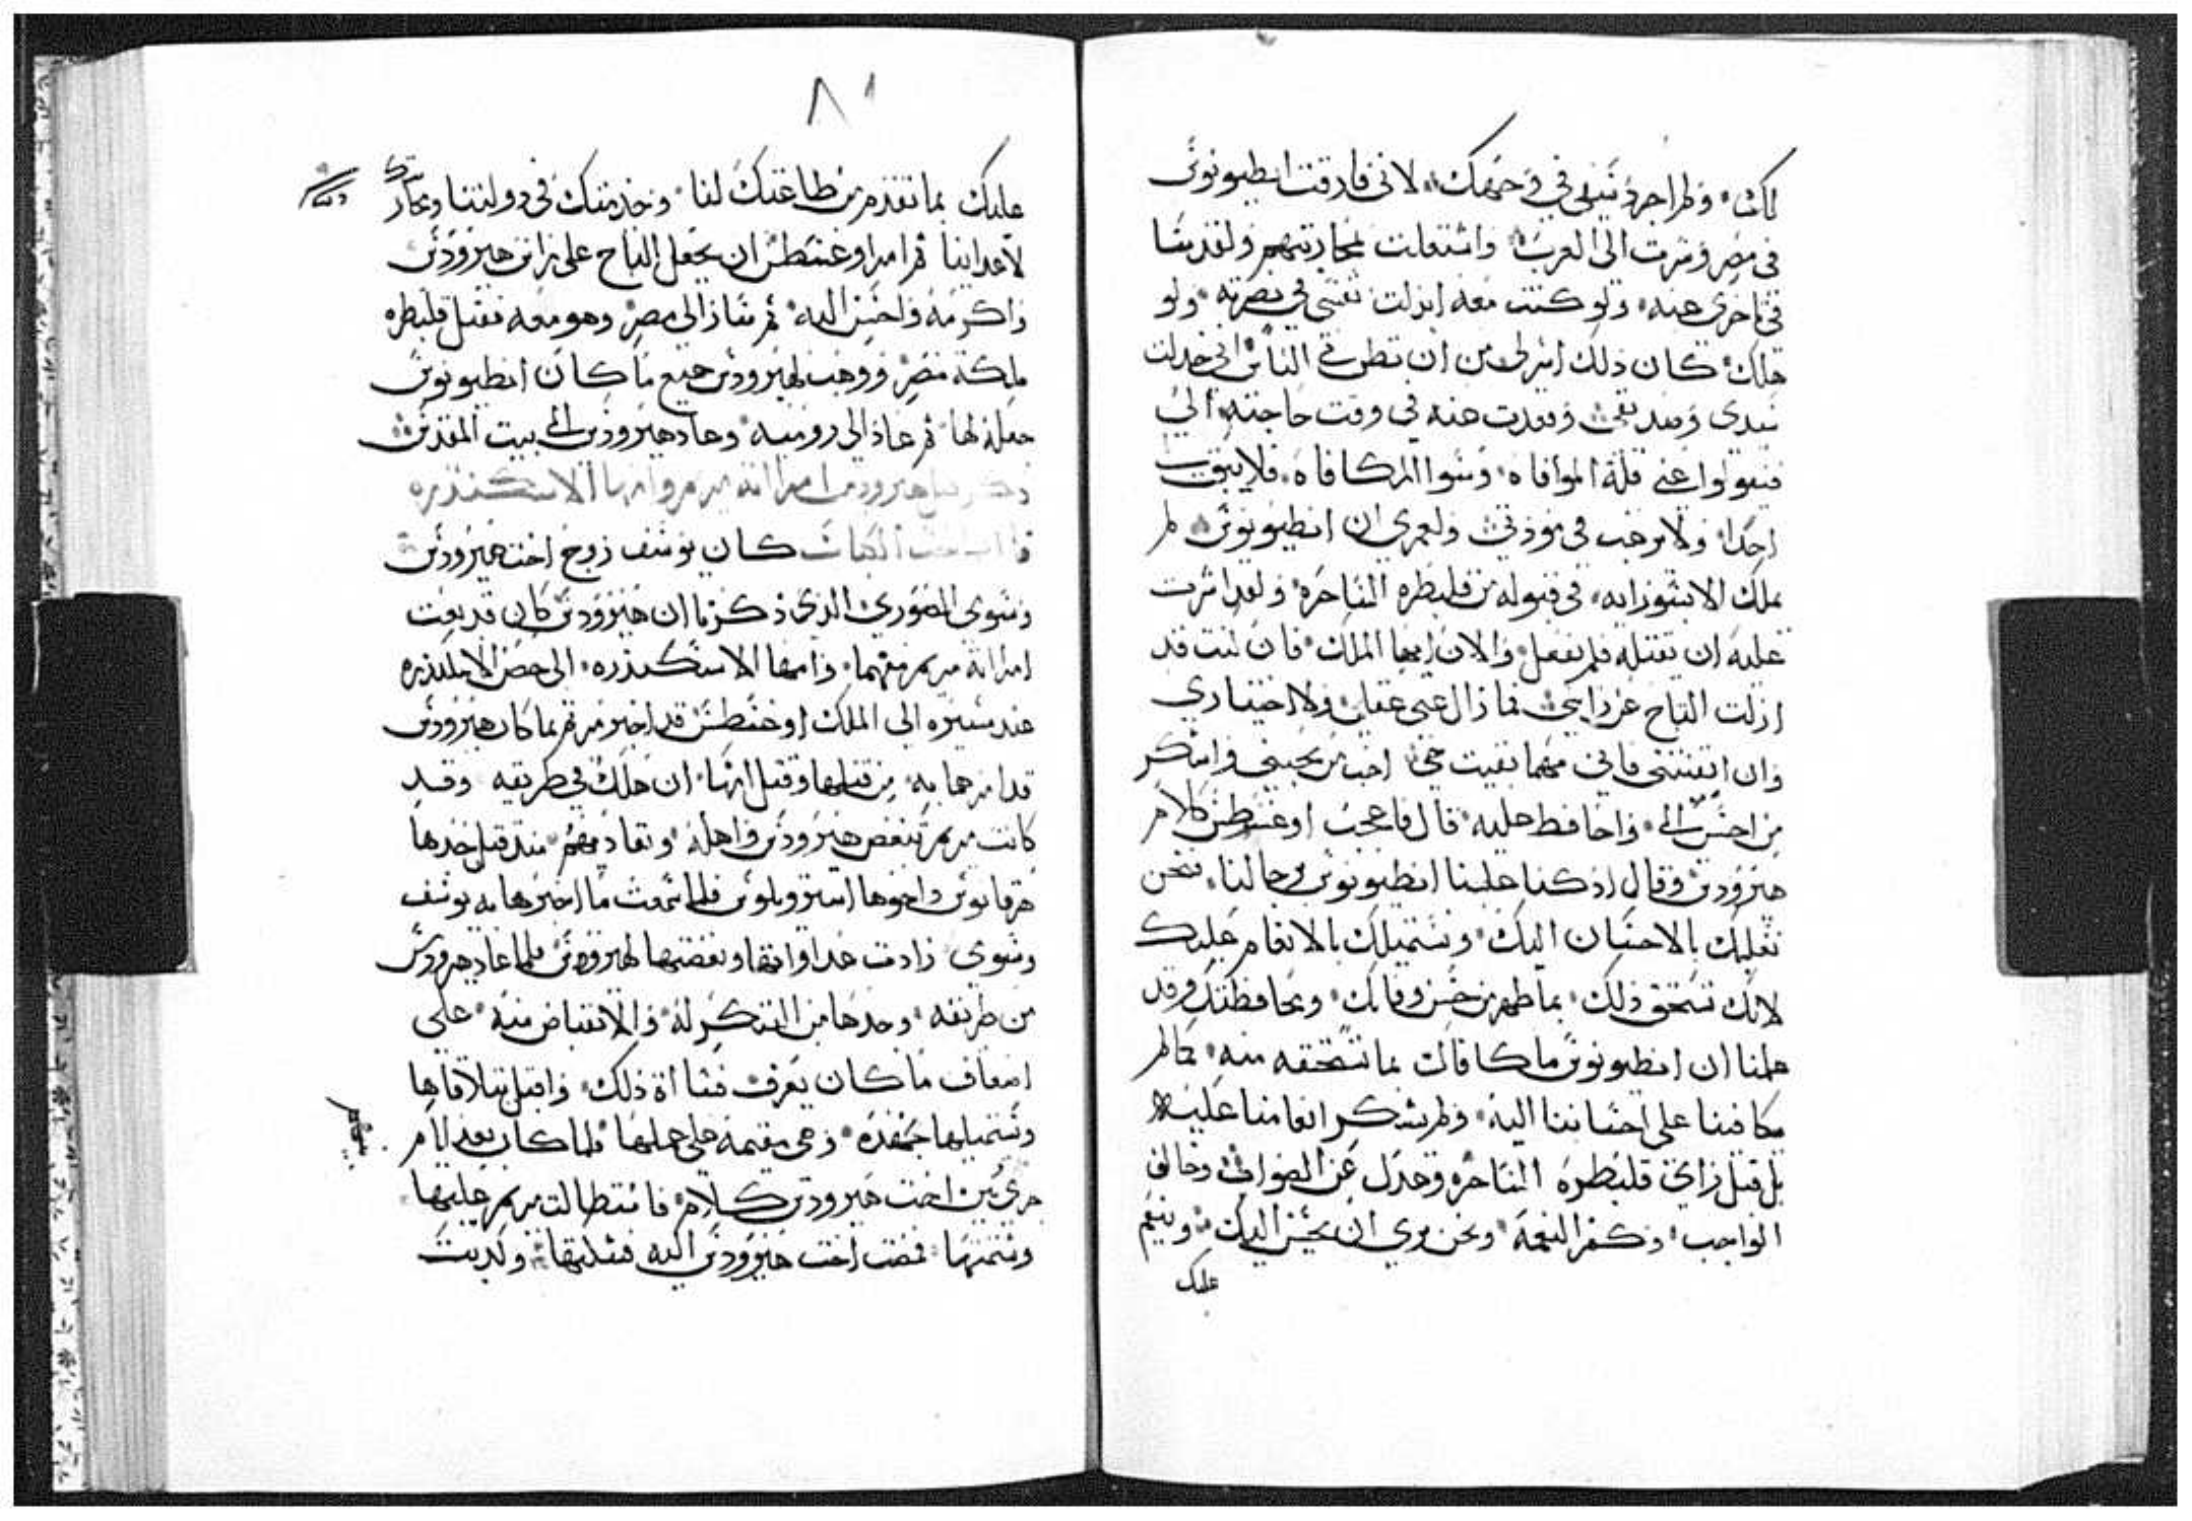 لك، ولم اجرد سيفى في وجهك، لانى فارقت انطيونوس
في مصر وسرت الى العرب، واشتغلت بمحاربتهم ولقد سا
نى تاخرى عنه، ولو كنت معه لبذلت نفسى في نصرته، ولو
هلك، كان ذلك اسر لى من ان تظن في الناس انى خذلت
سيدى وصديقى وقعدت عنه في وقت حاجته الى
فيقولوا عنى قلة الموافاه، وسوا المكافاه، فلا يثق بى
احدا، ولا يرغب في مودتى ولعمرى ان انطيونوس لم
يهلك الا بسو رايه، في قبوله من قلبطره الساحره، ولقد اشرت
عليه ان يقتلها فلم يفعل، والان ايها الملك، فان كنت قد
ازلت التاج عن راسى، فما زال عنى عقلى، ولا اختيارى
وان ابقيتنى فانى مهما بقيت حى، احب من يحبنى واشكر
من احسن الى، واحافظ عليه، قال فاعجب اوغسطس كلام
هيرودس وقال اذ كنا غلبنا انطيونوس برجالنا، فنحن
نغلبك بالاحسان اليك، ونستميلك بالانعام عليك
لانك تستحق ذلك، بما ظهر من حسن وفايك، ومحافظتك وقد
علمنا ان انطيونوس ما كافاك بما تستحقه منه، كما لم
يكافينا على احساننا اليه، ولم يشكر انعامنا عليه
بل قبل راى قلبطره الساحره وعدل عن الصواب، وخالف
الواجب، وكفر النعمه، ونحن نرى ان نحسن اليك، وننعم
عليك
٨١
عليك بما تقدم من طاعتك لنا، وخدمتك في دولتنا ومحاربتك
لاعداينا ثم امر اوغسطس ان يجعل التاج على راس هيرودس
واكرمه واحسن اليه، ثم سار الى مصر، وهو معه فقتل قلبطره
ملكة مصر، ووهب لهيرودس جميع ما كان انطيونوس
جعله لها، ثم عاد الى روميه، وعاد هيرودس الى بيت المقدس
ذكر قتل هيرودس امراته مريم وامها الاسكندره
كان يوسف زوج اخت هيرودس
وسوى الصورى الذى ذكرنا ان هيرودس كان قد بعث
امراته مريم معهما، وامها الاسكندره، الى حصن الاسكندره
عند مسيره الى الملك اوغسطس قد اخبر مريم بما كان هيرودس
قد امرهما به، من قتلها وقتل امها، ان هلك في طريقه وقد
كانت مريم تبغض هيرودس واهله، وتعاديهم، منذ قتل جدها
هرقانوس واخوها ارستوبلوس فلما سمعت ما اخبرها به يوسف
وسوى، زادت عداوتها وبغضتها لهيرودس فلما عاد هيرودس
من طريقه، وجدها من التنكر له، والانقباض منه، على
اضعاف ما كان يعرف فساه ذلك، واقبل يتلافاها
ويستميلها جهده، وهى مقيمه على حالها، ولما كان بعد ايام
جرى بين اخت هيرودس كلام، فاستطالت مريم عليها
وشتمتها، فمضت اخت هيرودس اليه فسالها، وكذبت